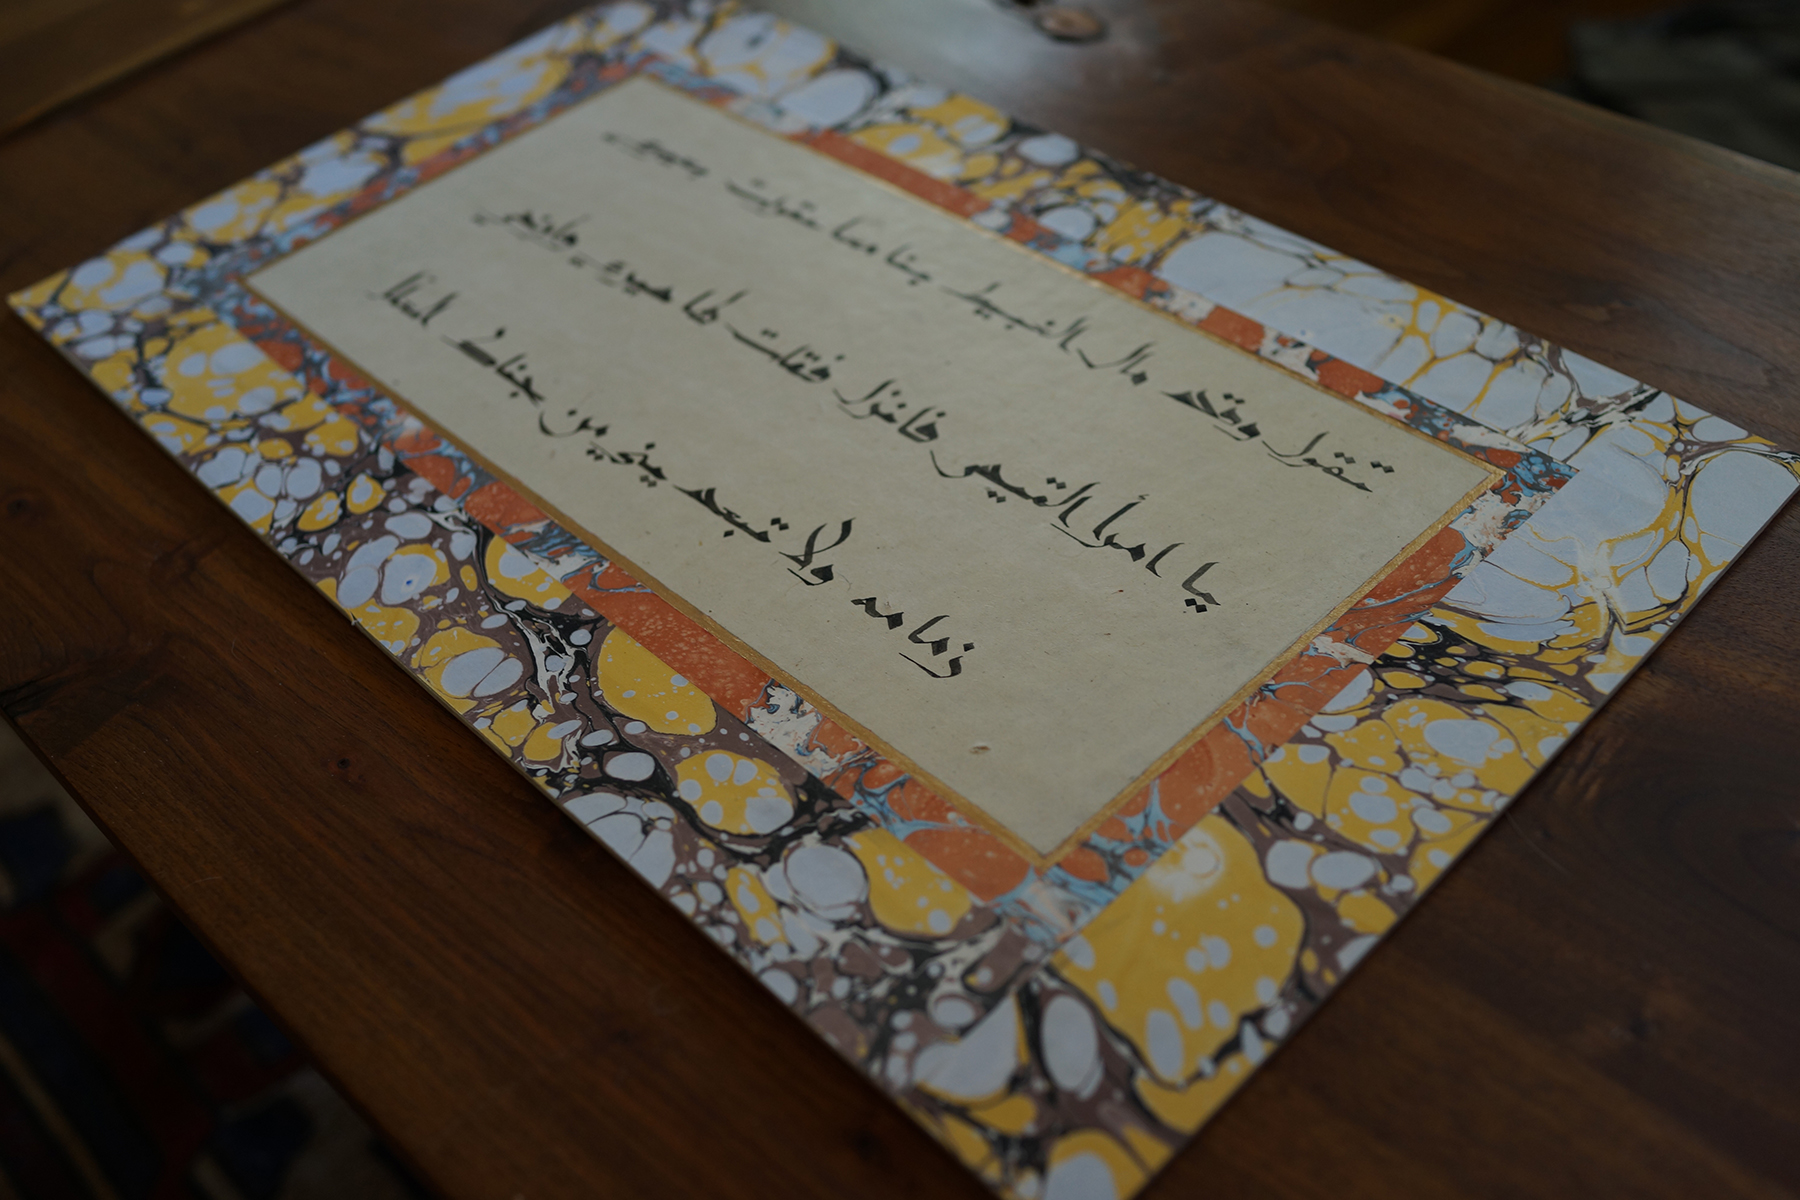 تقول وقد مال الغبيط بنا معا عقرت بعيري
يا امرأ القيس فانزل فقلت لها سيري وارخي
زمامه ولا تبعديني من جناك المعلل